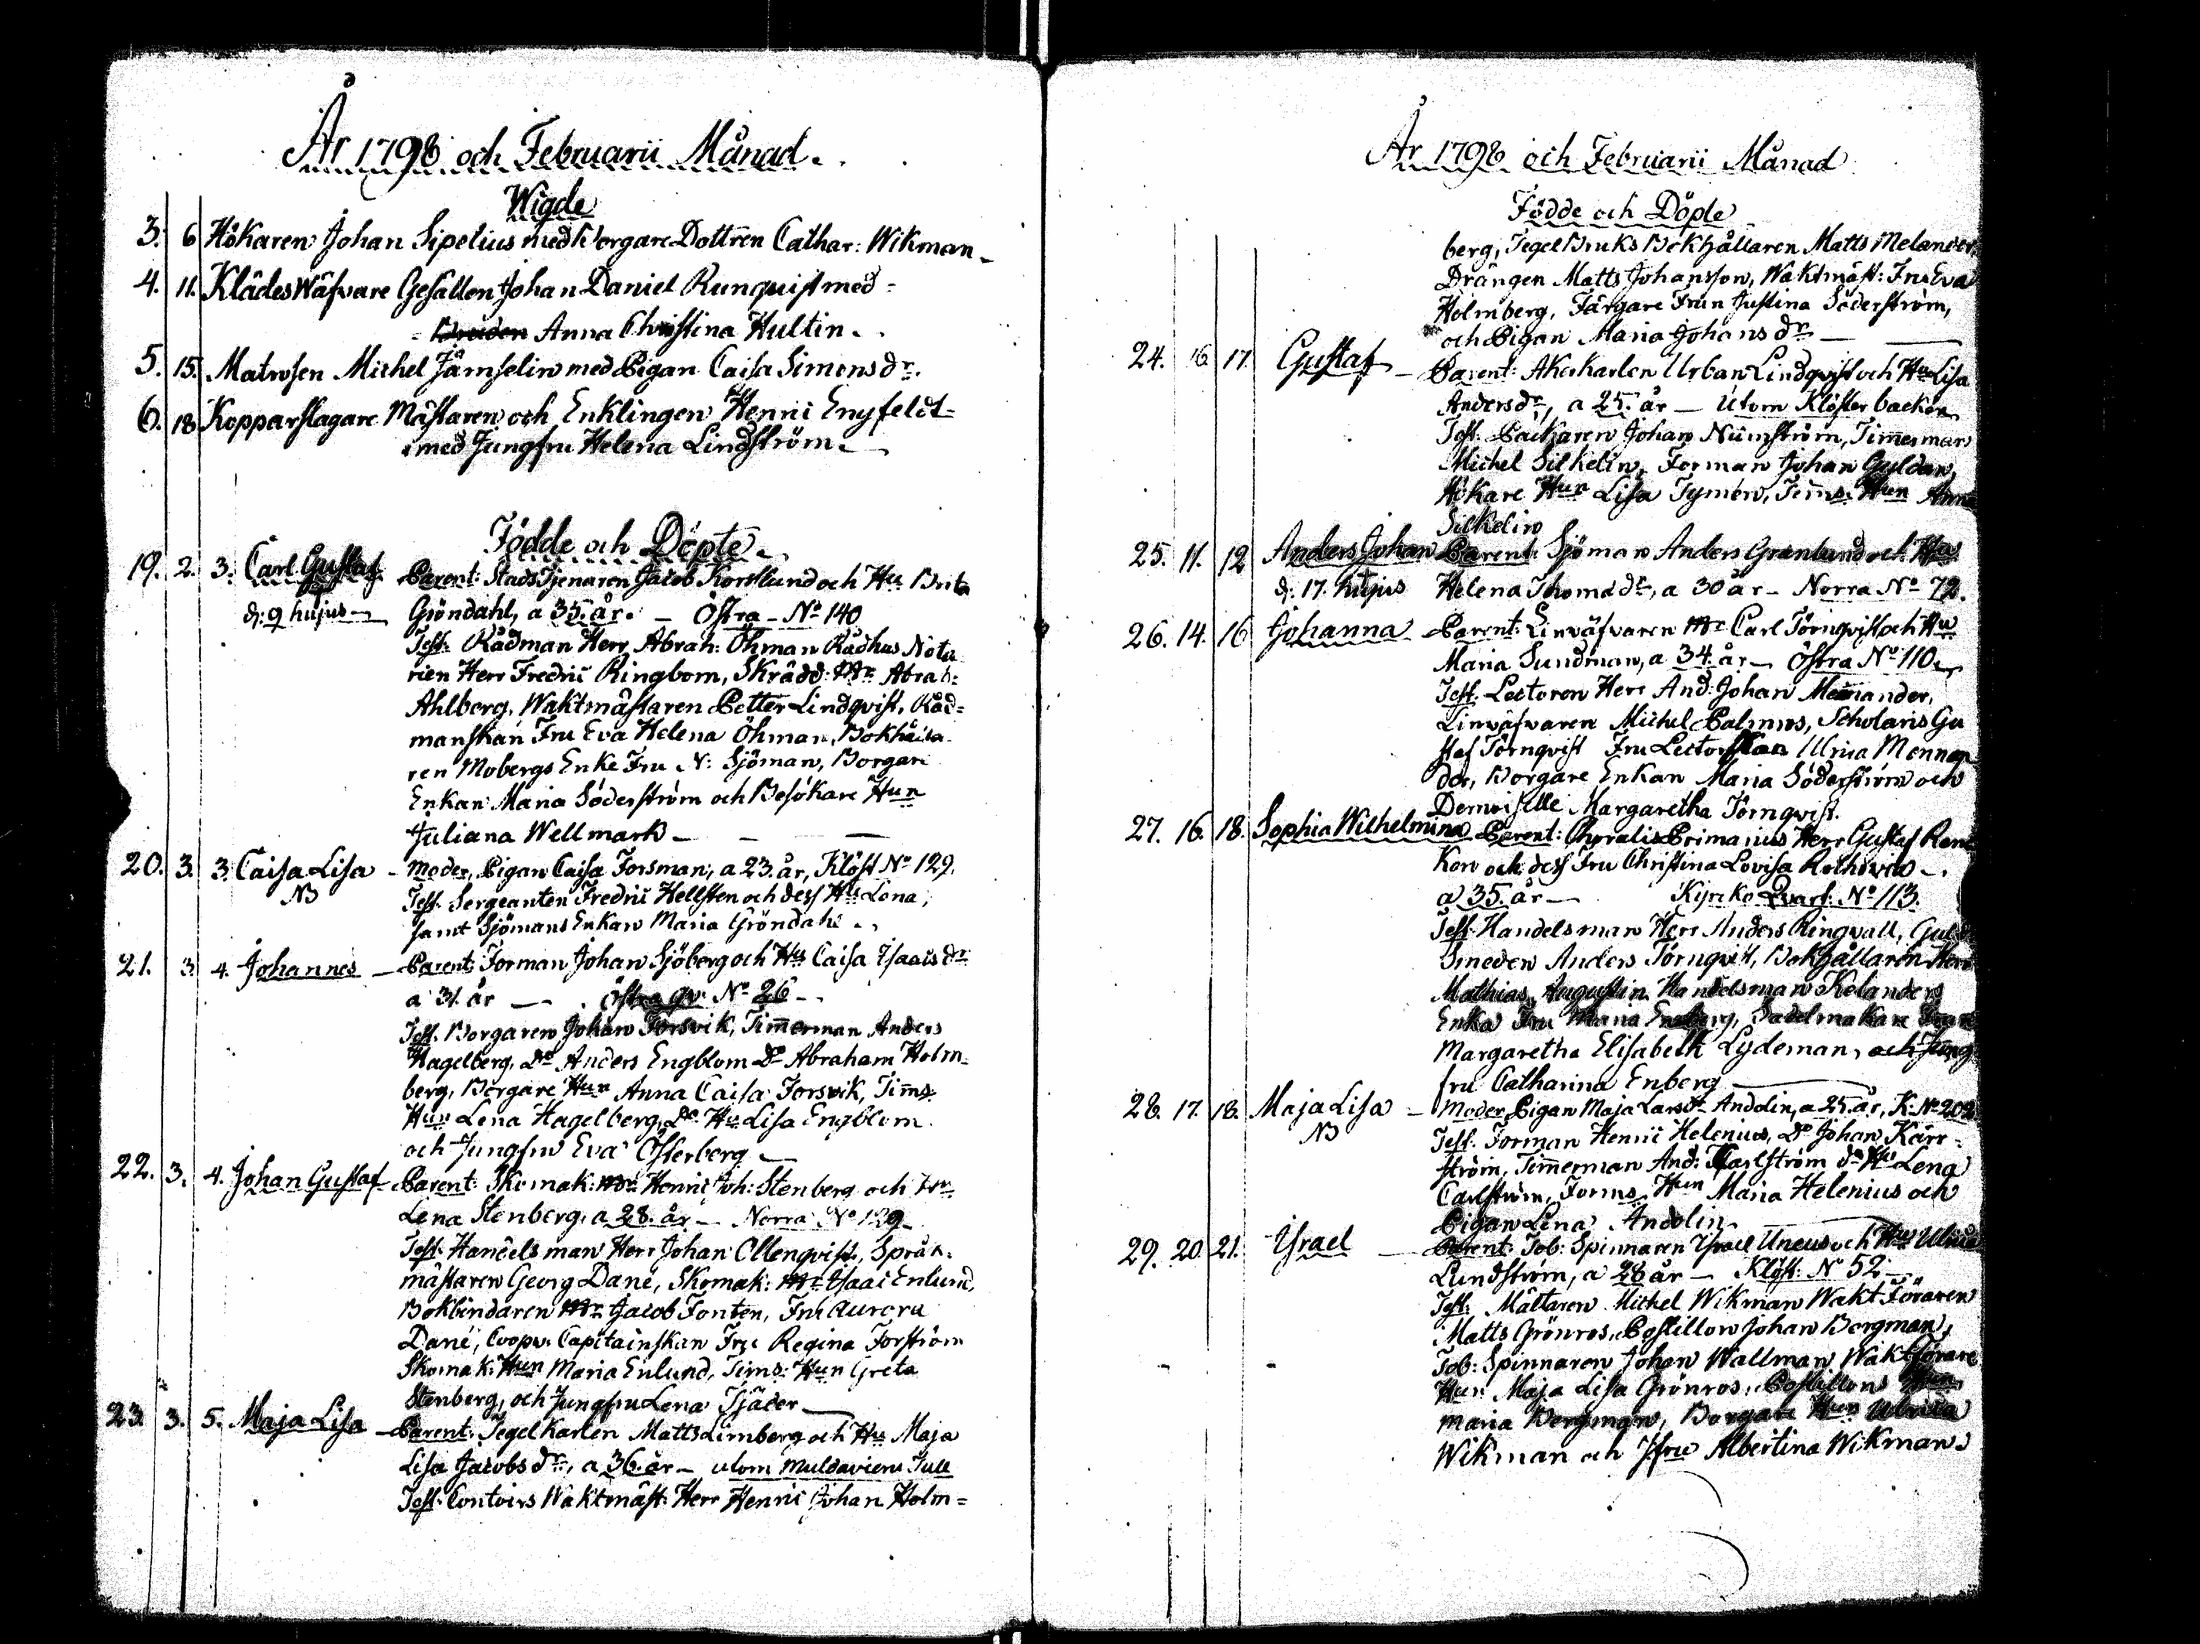 År 1798 och Februarii Månad.
Wigde
3. 6 Hökaren Johan Sipelius med Borgare Dottren Cathar: Wikman
4. 11. Klädes Wäfvare Gesällen Johan Daniel Runquist med =
= Anna Christina Hultin.
5. 15. Matrosen Michel Jämselin med Pigan Caisa Simonsdr.
6. 18 Kopparslagare Mästaren och Enklingen Henric Enyfeldt =
med Jungfru Helena Lindström
Födde och Döpte
19. 2. 3. Carl Gustaf Parent: Stads Tjenaren Jacob Korslund och Hu Brita
d: 9 hujus Gröndahl, a 35. år. Östra No 140
Test: Rådman Herr Abrah: Öhman Rådhus Nota
rien Herr Fredric Ringbom, Skrädd: Mr Abrah:
Ahlberg, Waktmästaren Petter Lindqvist, Råd=
manskan Fru Eva Helena Öhman, Bokhålla
ren Mobergs Enke Fru N: Sjöman, Borgare
Enkan Maria Söderström och Besökare Hun
Juliana Wellmark
20. 3. 3. Caisa Lisa Moder, Pigan Caisa Forsman, a 23. år, Klöst No 129.
NB Test. Sergeanten Fredric Hellsten och dess Hu Lena,
samt Sjömans Enkan Maria Gröndahl
21. 3. 4. Johannes Parent: Forman Johan Sjöberg och Hu Caisa Isaacs dr
a 31. år Östra qv. No 26
Test. Borgaren Johan Forsvik, Timmerman Anders
Hagelberg, Do Anders Engblom Do Abraham Holm
berg, Borgare Hun Anna Caisa Forsvik, Tims
Hun Lena Hagelberg, Do Hu Lisa Engblom
och Jungfru Eva Österberg
22. 3. 4. Johan Gustaf Parent: Skomak: Mr Henric Joh: Stenberg och Hu
Lena Stenberg, a 28. år Norra No 129
Test: Handelsman Herr Johan Ollenqvist, Språk=
mästaren Georg Dané, Skomak: Mr Isaac Enlund,
Bokbindaren Mr Jacob Fonten, Fru Aurora
Dané, Coopv. Capitainskan Fru Regina Forström
Skomak: Hun Maria Enlund, Tims: Hun Greta
Stenberg, och Jungfru Lena Tjäder
23. 3. 5. Maja Lisa Parent: Tegel Karlen Matts Limberg och Hu Maja
Lisa Jacobs dr, a 36. år utom Muldavieru Tull
Test: Contoirs Waktmäst: Herr Henric Johan Holm=
År 1798 och Februarii Månad
Födde och Döpte
berg, Tegel Bruks Bokhållaren Matts Melander,
Drängen Matts Johansson, Waktmäst: Fru Eva
Holmberg, Färgare Frun Justina Söderström,
och Pigan Maria Johans dr
24. 16 17. Gustaf Parent: Åkarkarlen Urban Lindqvist och Hu Lisa
Anders dr, a 25. år Utom Klöster backen
Test. Backaren Johan Nümström, Timmerman
Michel Silkelin, Forman Johan Guldan,
Hökare Hun Lisa Tymén, Tims. Hun Anna
Silkelin
25. 11. 12 Anders Johan Parent: Sjöman Anders Granlund och Hu
d: 17. hujus Helena Thoma dr, a 30 år Norra No 72.
26. 14. 16 Johanna Parent: Linväfvaren Mr Carl Törnqvist och Hu
Maria Sundman, a 34. år Östra No 110
Test. Lectoren Herr And: Johan Mennander,
Linväfvaren Michel Palmros, Scholaris Gu
staf Törnqvist Fru Lectorskan Ulrica Mennan
der, Borgare Enkan Maria Söderström och
Demoiselle Margaretha Törnqvist.
27. 16. 18. Sophia Wilhelmina Parent: Choralis Primarius Herr Gustaf Ren
kon och dess Fru Christina Lovisa Rothovia
a 35. år Kyrko Qvart: No 113.
Test: Handelsman Herr Anders Ringvall, Guld
Smeden Anders Törnqvist, Bokhållaren Herr
Mathias Augustin Handelsman Kelanders
Enka Fru Maria Enberg, Sadelmakare
Margaretha Elisabeth Lydeman, och Jung
fru Catharina Enberg
28. 17. 18. Maja Lisa Moder, Pigan Maja Larsdr Andolin, a 25. år, K. No 202
NB Test. Forman Henric Helenius, Do Johan Kärr=
ström, Timmerman And: Carlström do Hu Lena
Carlström, Forms Hun Maria Helenius och
Pigan Lena Andolin
29. 20. 21. Israel Parent: Tob: Spinnaren Israel Uneus och Hu Ulrica
Lundström, a 28 år Klöst: No 52
Test: Mältaren Michel Wikman Wakt Föraren
Matts Grönros, Postillon Johan Bergman,
Tob: Spinnaren Johan Wallman, Waktförare
Hun Maja Lisa Grönros, Postillons Hun
Maria Bergman, Borgare Hun Ulrica
Wikman och Jfru Albertina Wikman